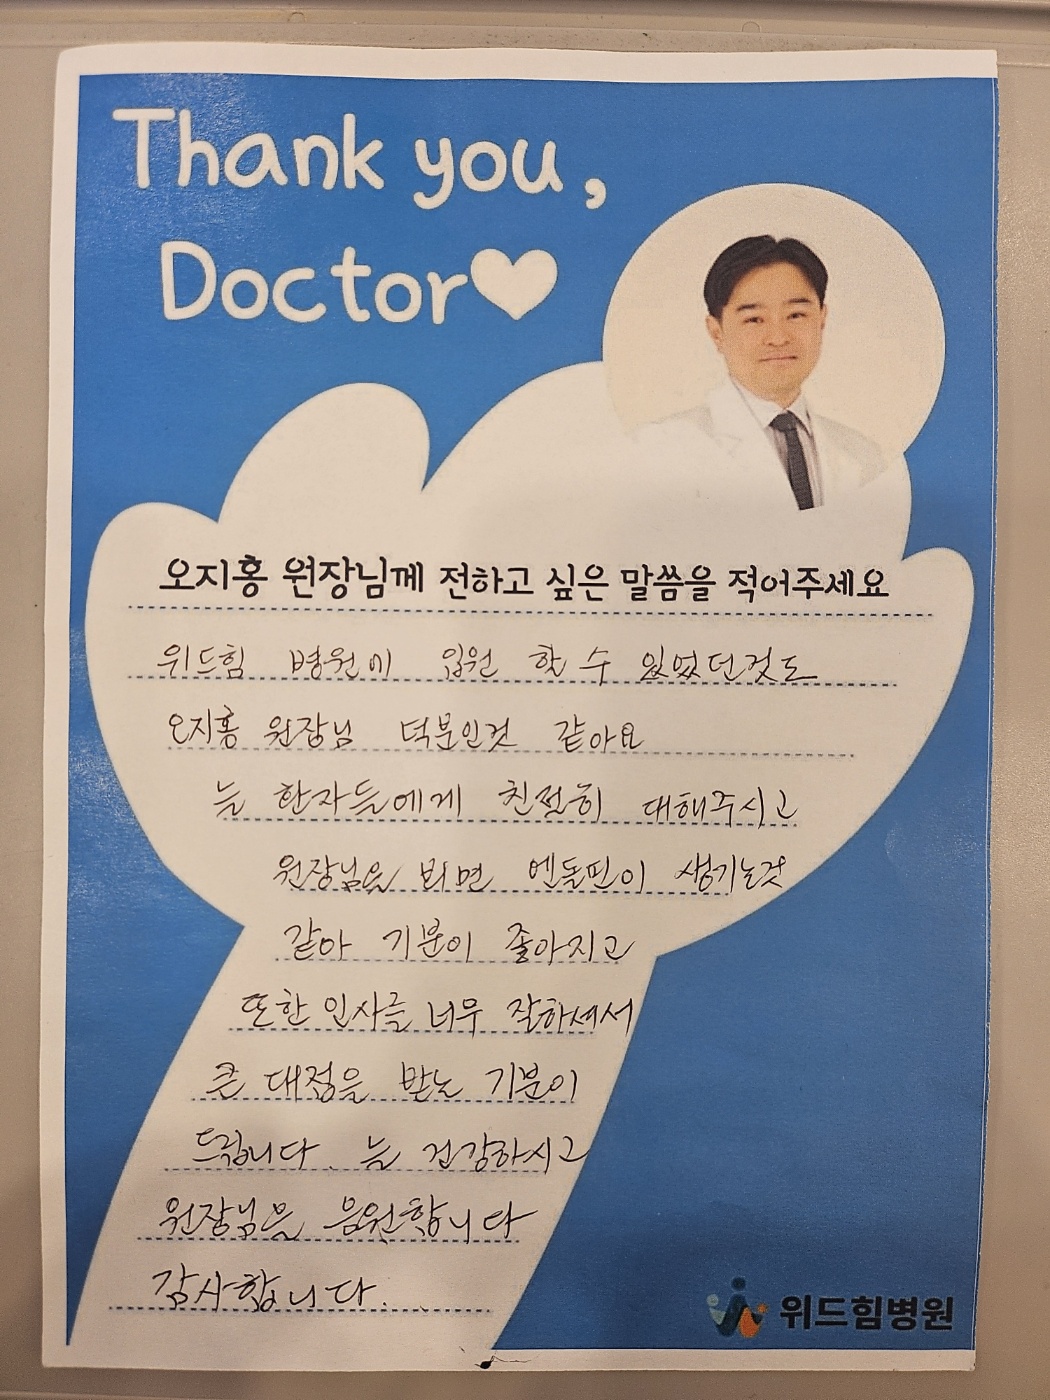 Thank you,
Doctor♥
오지홍 원장님께 전하고 싶은 말씀을 적어주세요
위드힘 병원에 입원 할 수 있었던것도
오지홍 원장님 덕분인것 같아요
늘 환자들에게 친절히 대해주시고
원장님을 뵈면 엔돌핀이 생기는것
같아 기분이 좋아지고
또한 인사를 너무 잘하셔서
큰 대접을 받는 기분이
드립니다. 늘 건강하시고
원장님을 응원합니다
감사합니다.
위드힘병원